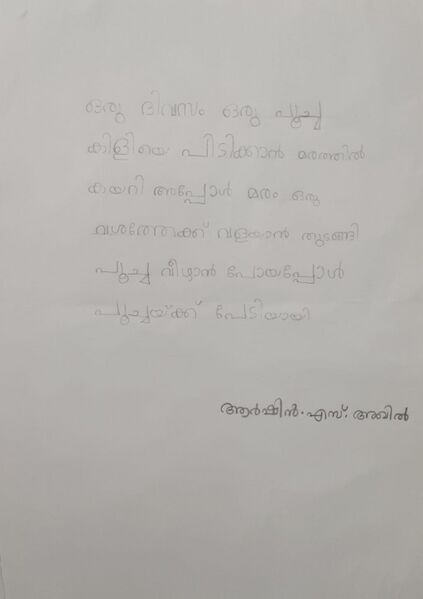 ഒരു ദിവസം ഒരു പൂച്ച
കിളിയെ പിടിക്കാൻ മരത്തിൽ
കയറി അപ്പോൾ മരം ഒരു
വശത്തേക്ക് വളയാൻ തുടങ്ങി
പൂച്ച വീഴാൻ പോയപ്പോൾ
പൂച്ചയ്ക്ക് പേടിയായി
ആർഷിൻ. എസ്. അഖിൽ